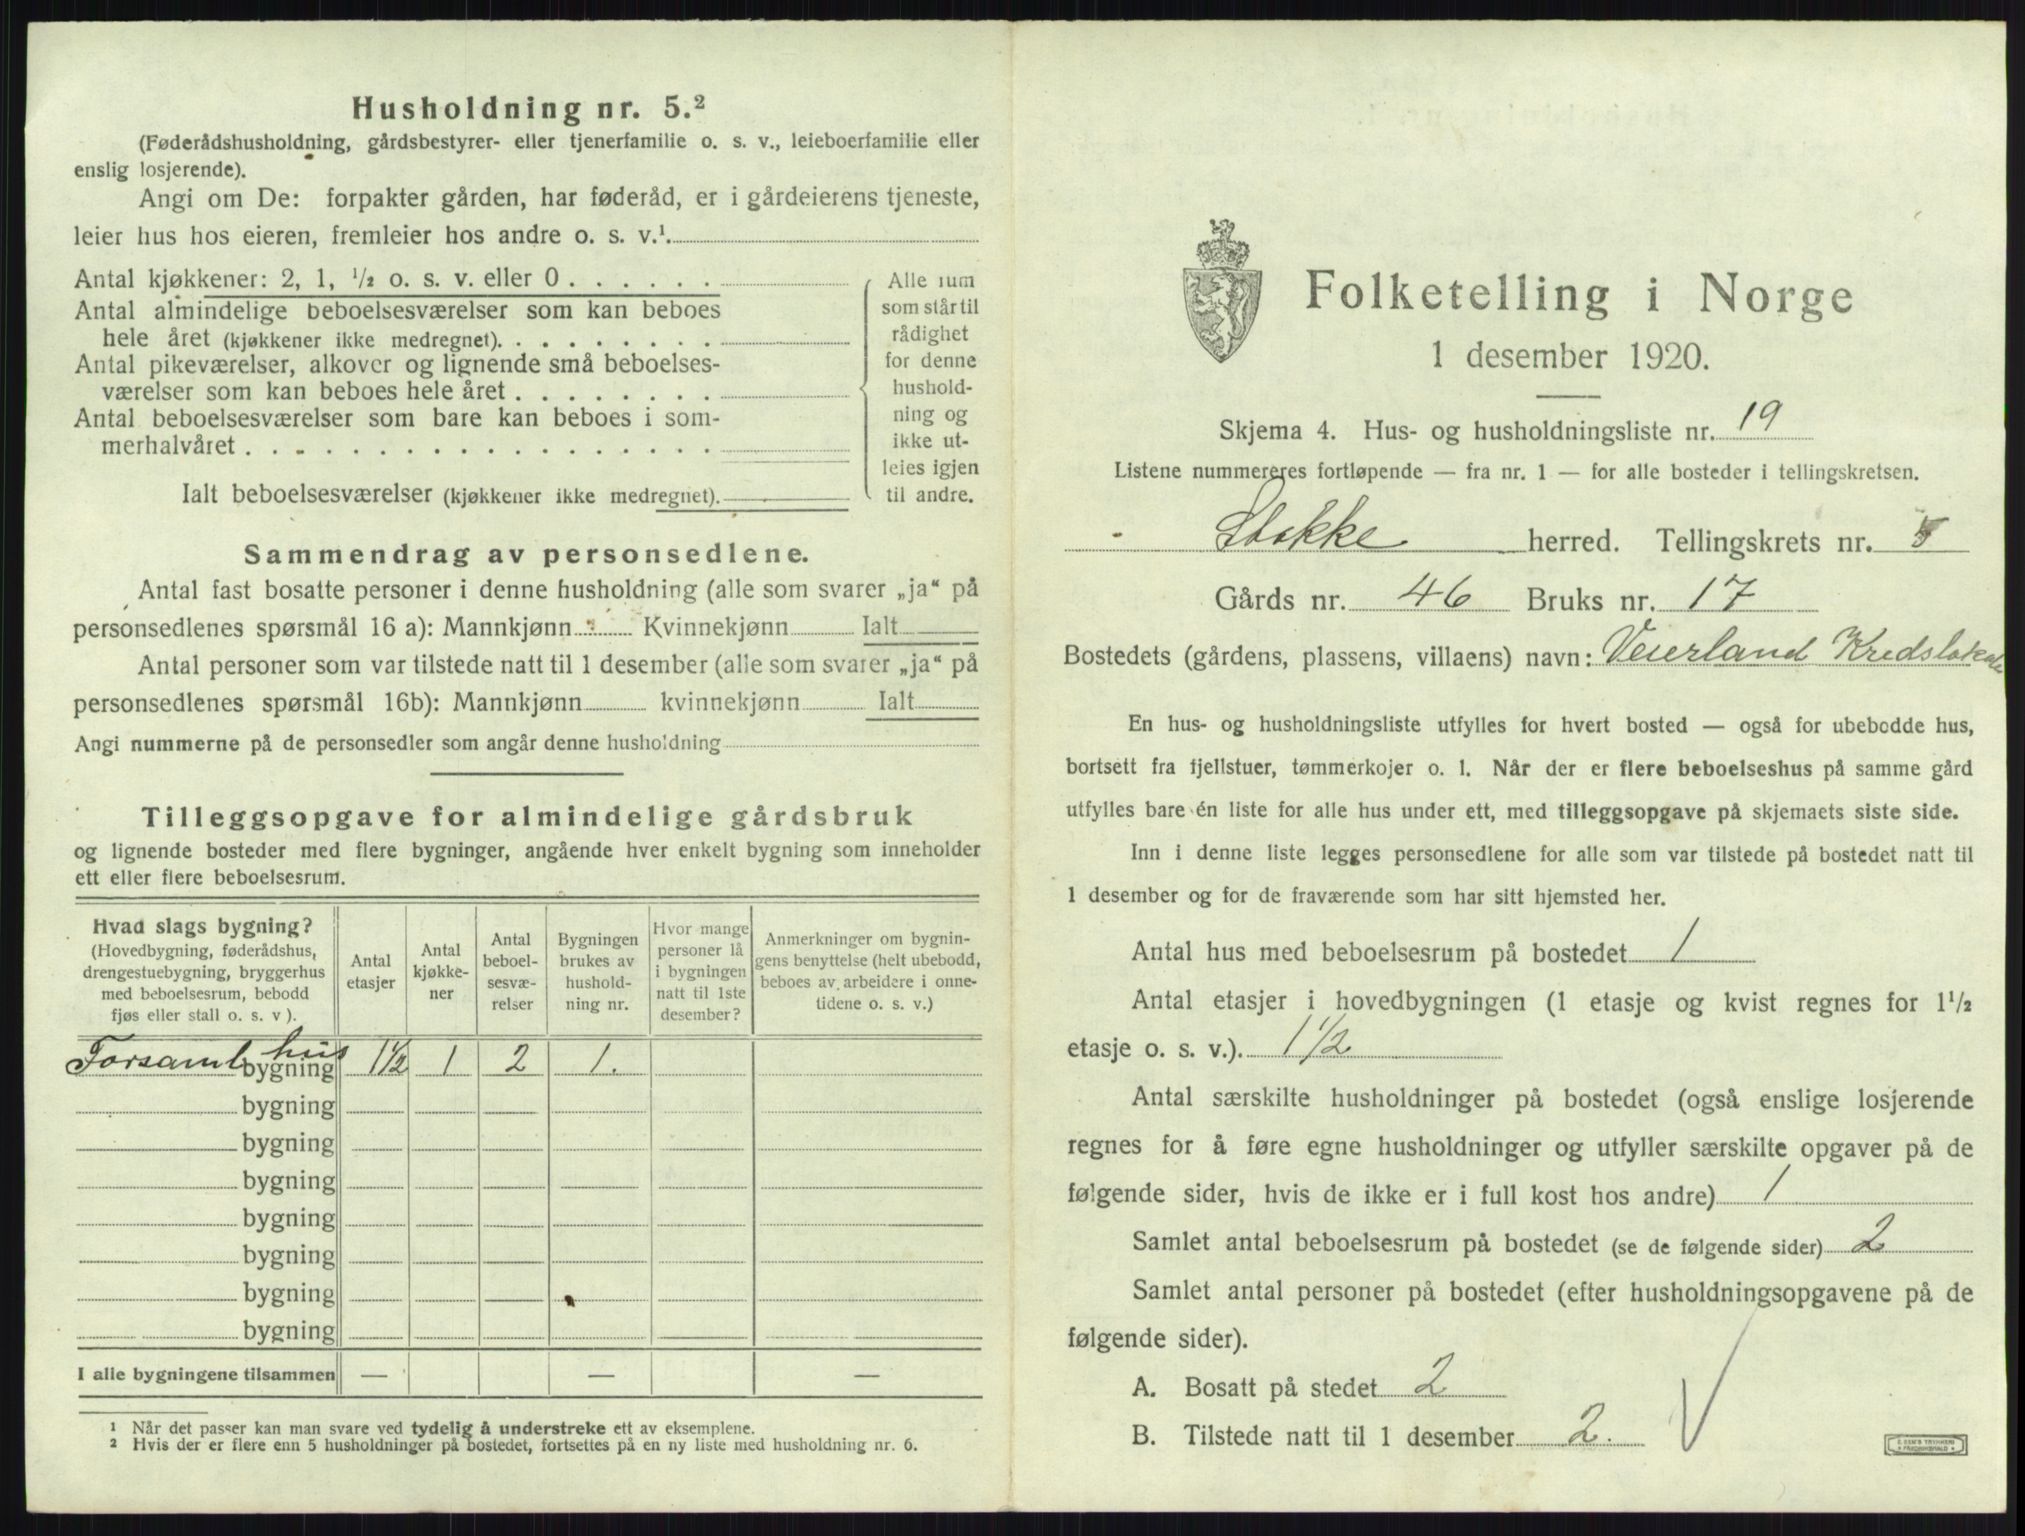 Husholdning nr. 5.²
(Føderådshusholdning, gårdsbestyrer- eller tjenerfamilie o. s. v., leieboerfamilie eller
enslig losjerende).
Angi om De: forpakter gården, har føderåd, er i gårdeierens tjeneste,
leier hus hos eieren, fremleier hos andre o. s. v.¹
Antal kjøkkener: 2, 1, ½ o. s. v. eller 0 . . . . . .
Antal almindelige beboelsesværelser som kan beboes
hele året (kjøkkener ikke medregnet). . . . . . . . .
Antal pikeværelser, alkover og lignende små beboelses-
værelser som kan beboes hele året . . . . . . . .
Antal beboelsesværelser som bare kan beboes i som-
merhalvåret . . . . . . . . . . . . . . . . . .
Ialt beboelsesværelser (kjøkkener ikke medregnet).
Alle rum
som står til
rådighet
for denne
hushold-
ning og
ikke ut-
leies igjen
til andre.
Sammendrag av personsedlene.
Antal fast bosatte personer i denne husholdning (alle som svarer „ja“ på
personsedlenes spørsmål 16 a): Mannkjønn Kvinnekjønn Ialt
Antal personer som var tilstede natt til 1 desember (alle som svarer „ja“ på
personsedlenes spørsmål 16b): Mannkjønn kvinnekjønn Ialt
Angi nummerne på de personsedler som angår denne husholdning
Tilleggsopgave for almindelige gårdsbruk
og lignende bosteder med flere bygninger, angående hver enkelt bygning som inneholder
ett eller flere beboelsesrum.
Hvad slags bygning?
(Hovedbygning, føderådshus,
drengestuebygning, bryggerhus
med beboelsesrum, bebodd
fjøs eller stall o. s. v ).
Antal
etasjer
Antal
kjøkke-
ner
Antal
beboel-
sesvæ-
relser
Bygningen
brukes av
hushold-
ning nr.
Hvor mange
personer lå
i bygningen
natt til 1ste
desember?
Anmerkninger om bygnin-
gens benyttelse (helt ubebodd,
beboes av arbeidere i onne-
tidene o. s. v.)
Forsaml hus bygning 1½ 1 2 1.
bygning
bygning
bygning
bygning
bygning
bygning
bygning
I alle bygningene tilsammen — — —
¹ Når det passer kan man svare ved tydelig å understreke ett av eksemplene.
² Hvis der er flere enn 5 husholdninger på bostedet, fortsettes på en ny liste med husholdning nr. 6.
Folketelling i Norge
1 desember 1920.
Skjema 4. Hus- og husholdningsliste nr. 19
Listene nummereres fortløpende — fra nr. 1 — for alle bosteder i tellingskretsen.
Stokke herred. Tellingskrets nr. 8
Gårds nr. 46 Bruks nr. 17
Bostedets (gårdens, plassens, villaens) navn: Veierland Kredslokale
En hus- og husholdningsliste utfylles for hvert bosted — også for ubebodde hus,
bortsett fra fjellstuer, tømmerkojer o. l. Når der er flere beboelseshus på samme gård
utfylles bare én liste for alle hus under ett, med tilleggsopgave på skjemaets siste side.
Inn i denne liste legges personsedlene for alle som var tilstede på bostedet natt til
1 desember og for de fraværende som har sitt hjemsted her.
Antal hus med beboelsesrum på bostedet 1
Antal etasjer i hovedbygningen (1 etasje og kvist regnes for 1½
etasje o. s. v.). 1½
Antal særskilte husholdninger på bostedet (også enslige losjerende
regnes for å føre egne husholdninger og utfyller særskilte opgaver på de
følgende sider, hvis de ikke er i full kost hos andre) 1
Samlet antal beboelsesrum på bostedet (se de følgende sider) 2
Samlet antal personer på bostedet (efter husholdningsopgavene på de
følgende sider).
A. Bosatt på stedet 2
B. Tilstede natt til 1 desember 2.